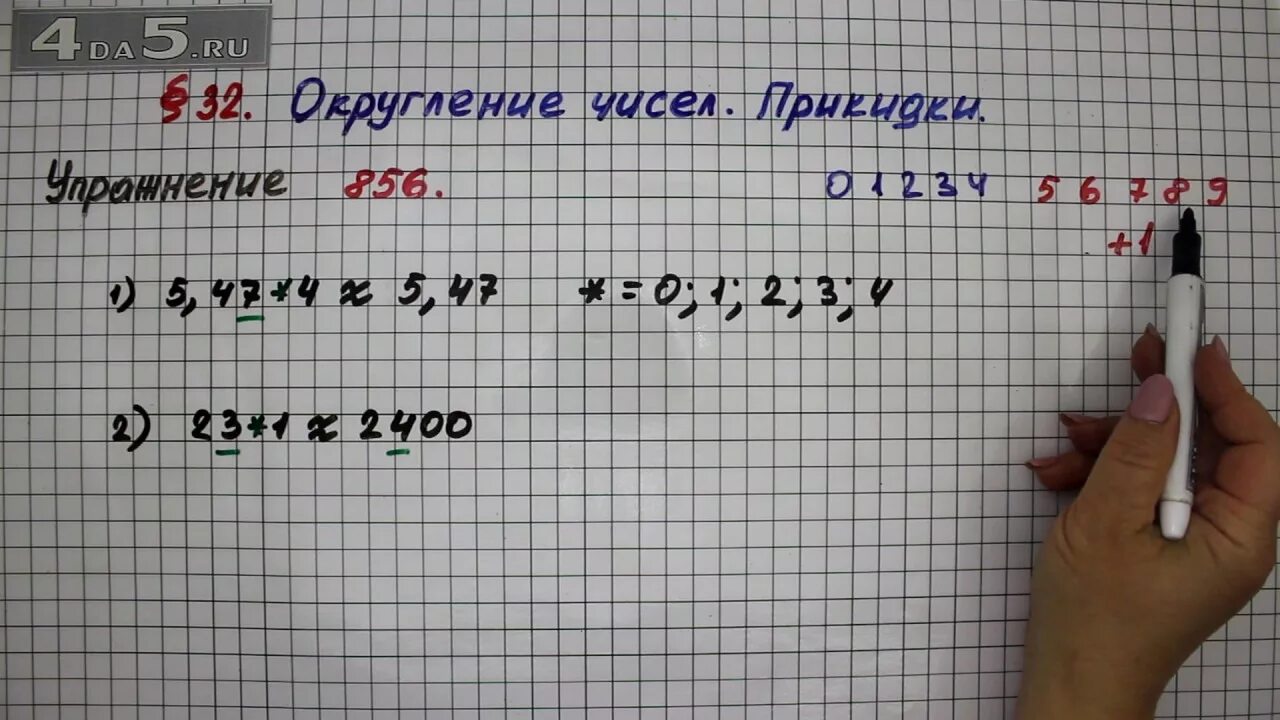 4DA5.RU
§ 32. Округление чисел. Прикидки.
Упражнение 856. 0 1 2 3 4 5 6 7 8 9
+1
1) 5,47*4 ≈ 5,47 * = 0; 1; 2; 3; 4
2) 23*1 ≈ 2400